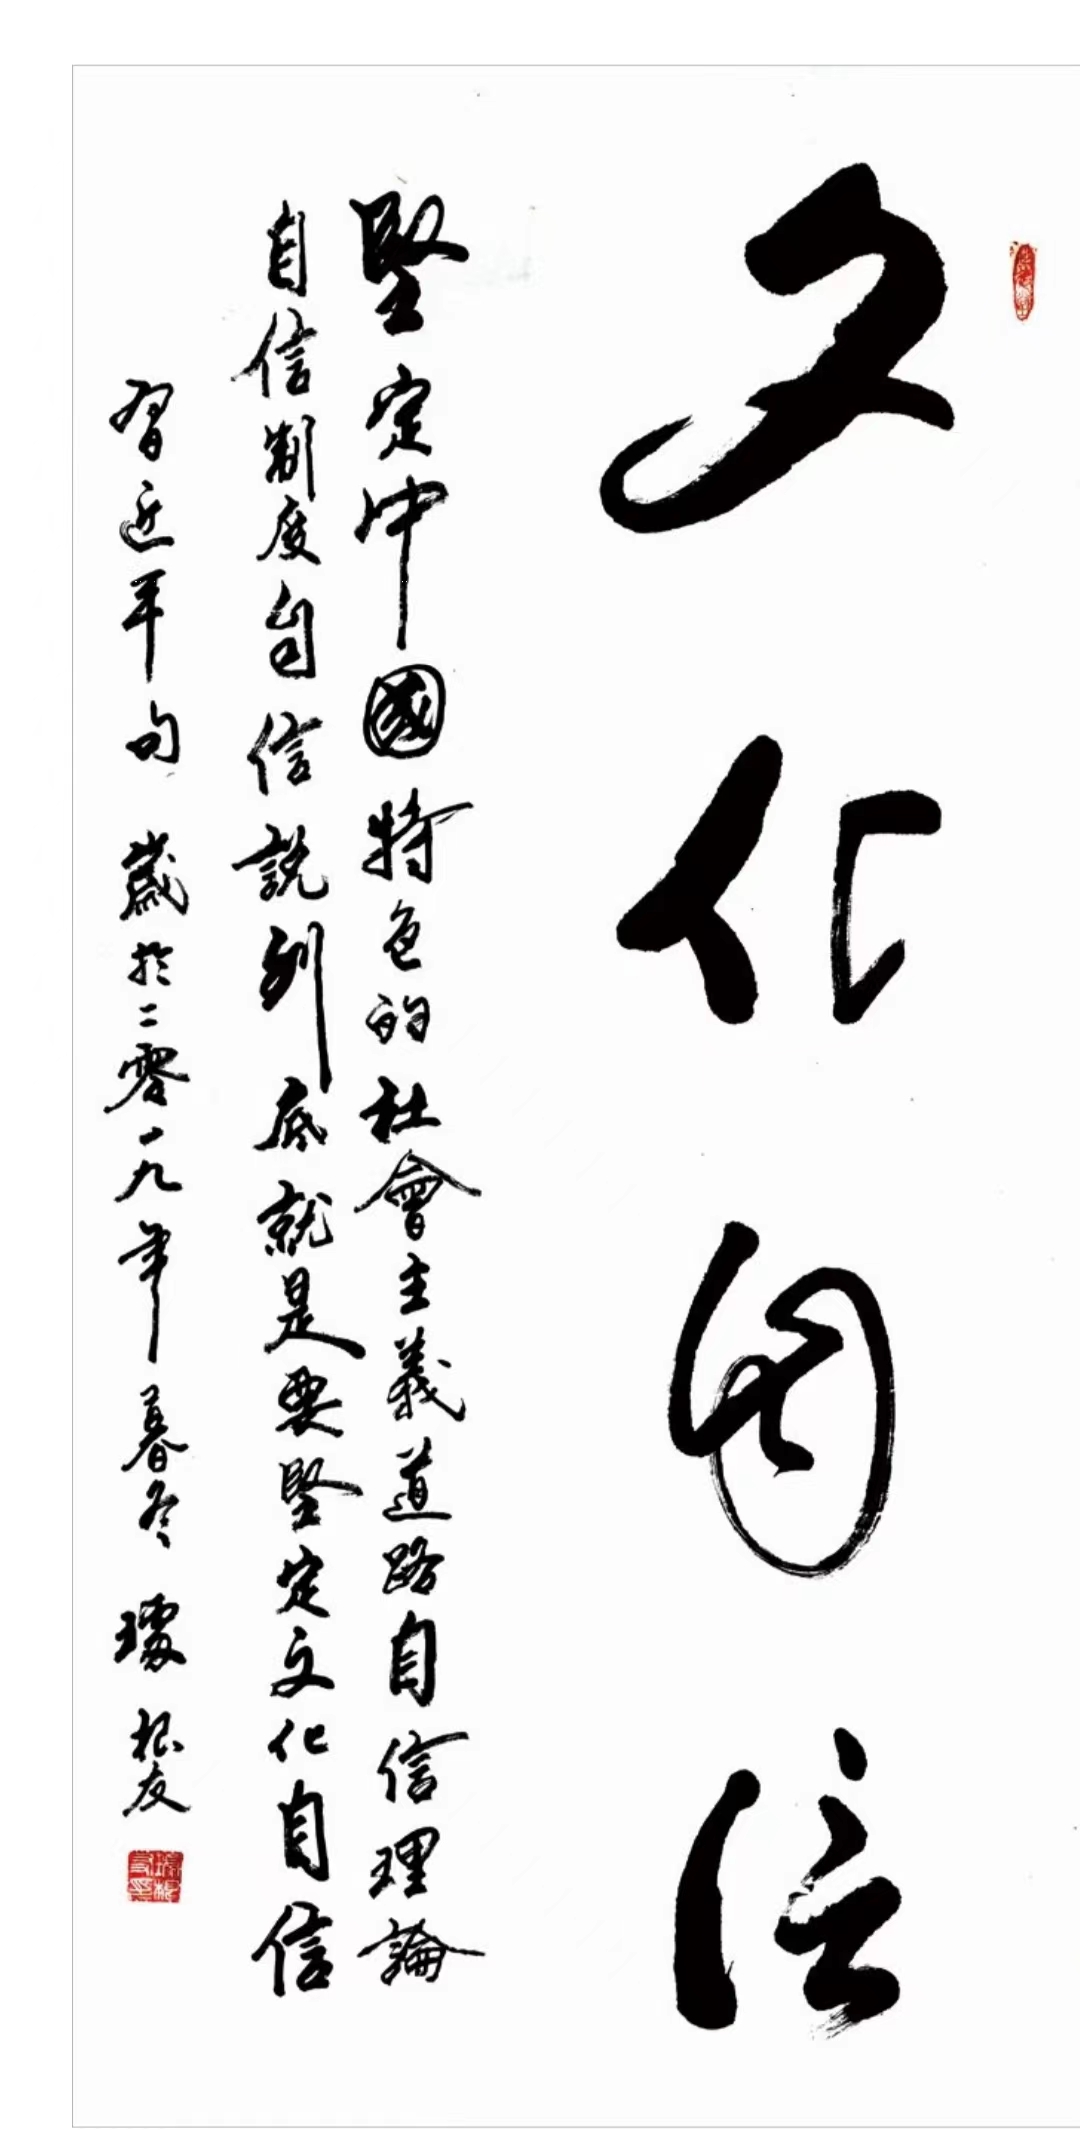 文化自信
堅定中國特色的社會主義道路自信理論
自信制度自信説到底就是要堅定文化自信
習近平句 歲於二零一九年暮冬 璩根友